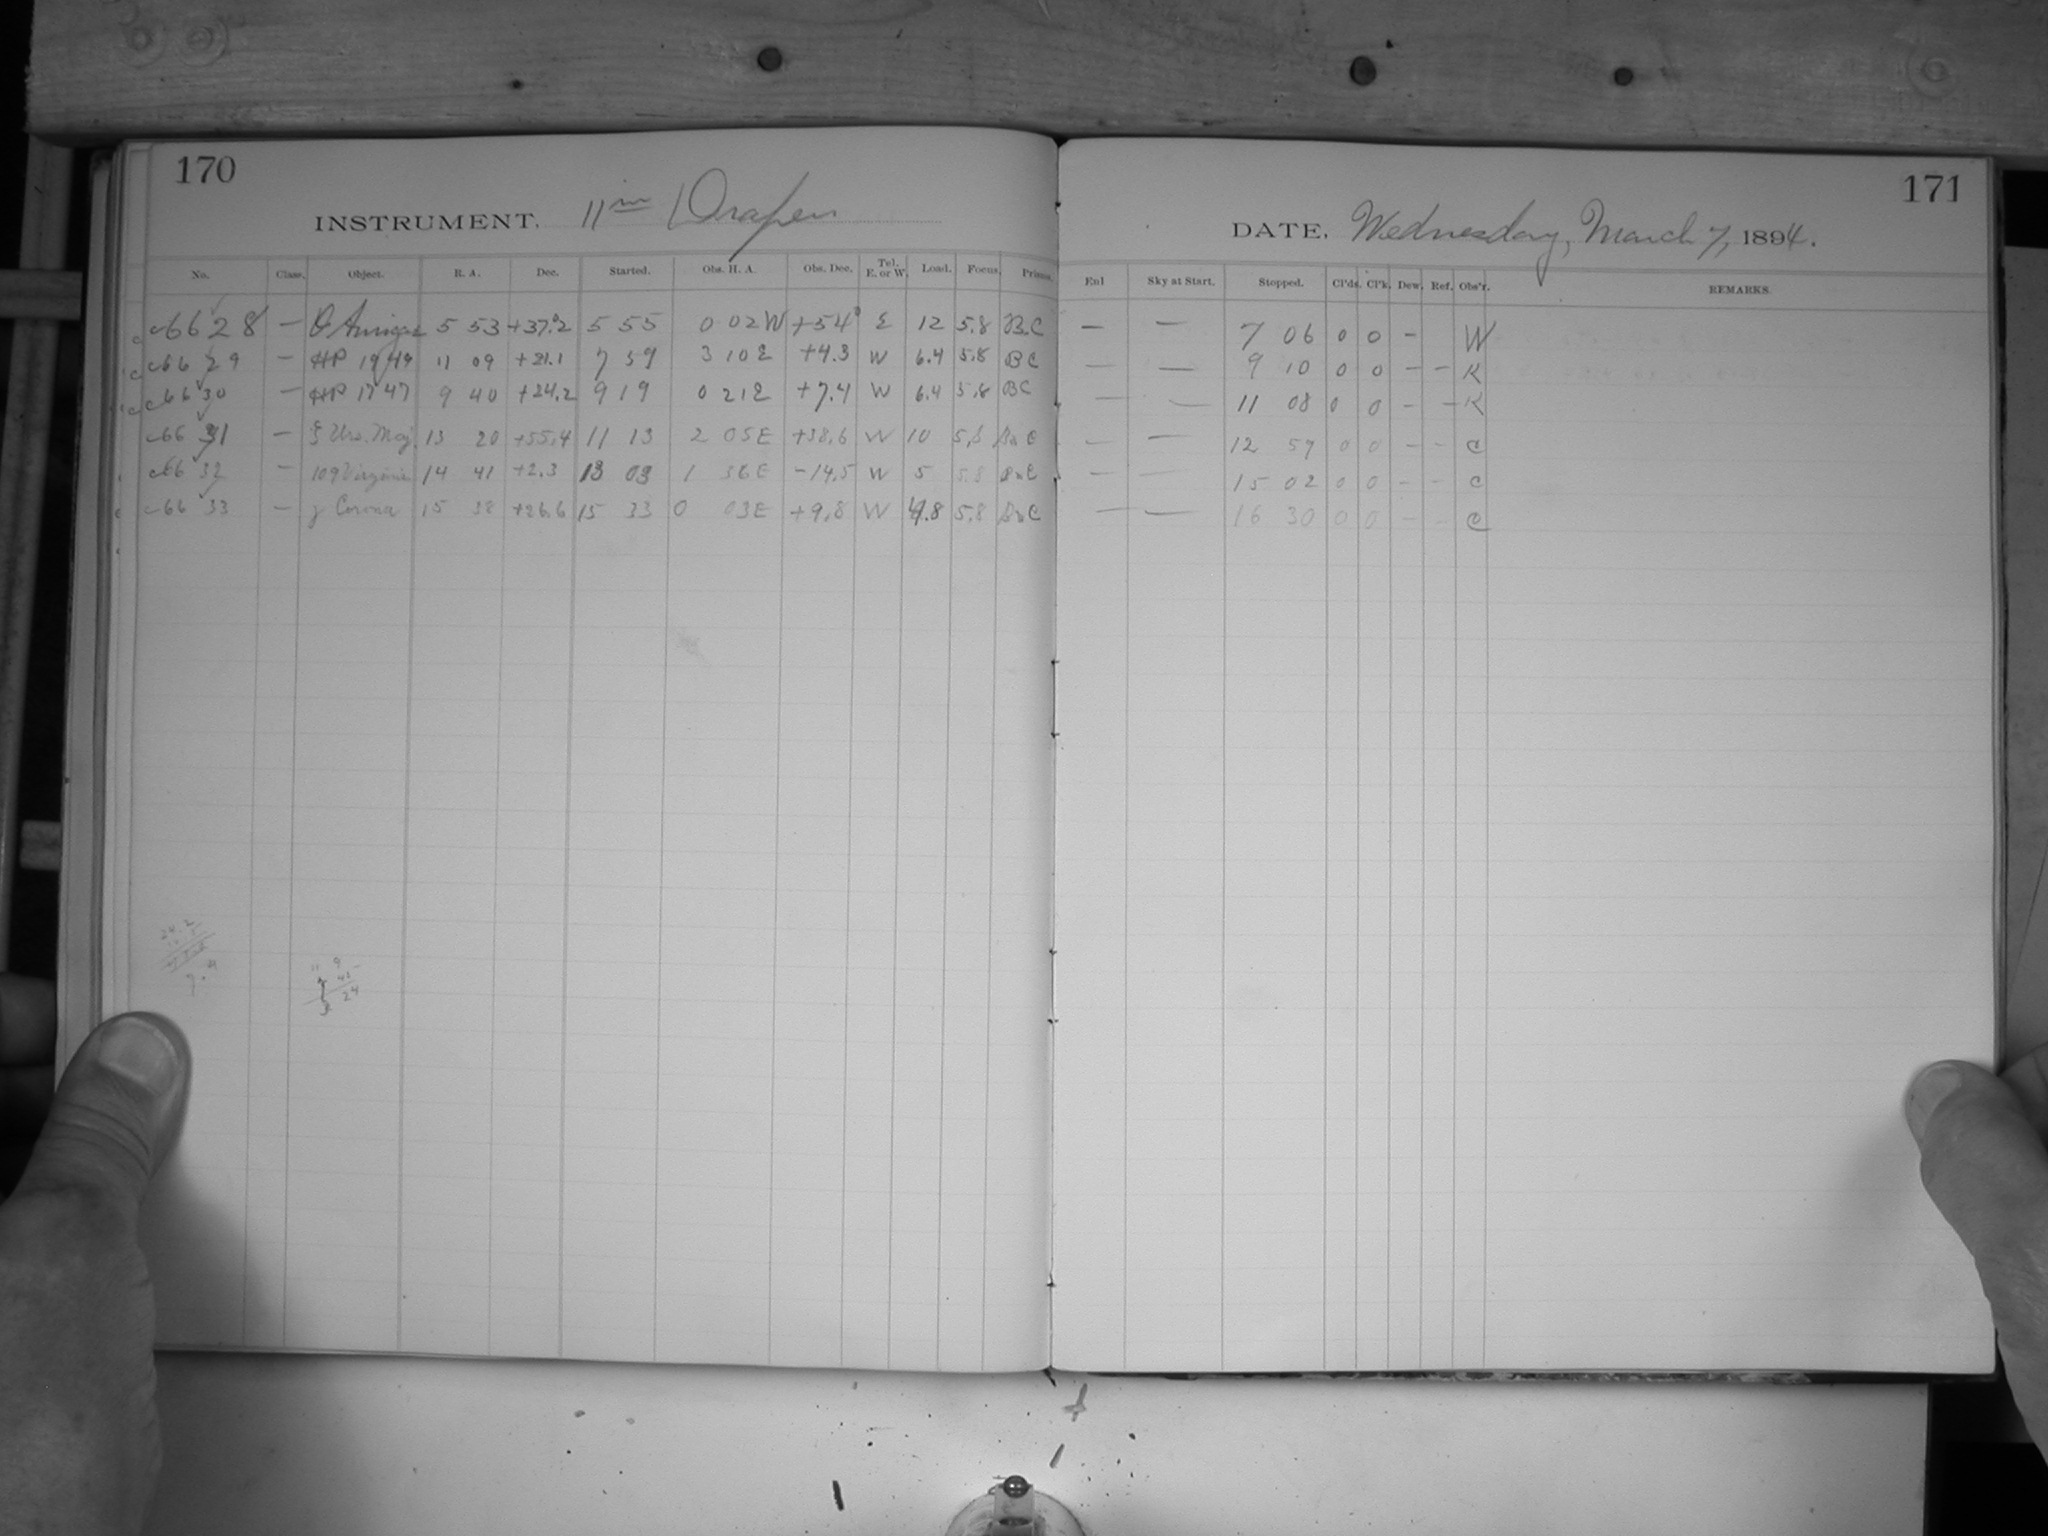 170
INSTRUMENT. 11 in Draper
No. Class. Object. R. A. Dec. Started. Obs. H. A. Obs. Dec. Tel. E. or W. Load. Focus. Prisms.
c6628 — θ Aurigae 5 53 +37.°2 5 55 0 02W +54° E 12 5.8 BC
c6629 — HP 1949 11 09 +21.1 7 59 3 10E +4.3 W 6.4 5.8 BC
c6630 — HP 1747 9 40 +24.2 9 19 0 21E +7.4 W 6.4 5.8 BC
c6631 — ξ Urs. Maj. 13 20 +55.4 11 13 2 05E +38.6 W 10 5.8 C
c6632 — 109 Virginis 14 41 +2.3 13 03 1 36E -14.5 W 5 5.8 C
c6633 — γ Corona 15 38 +26.6 15 33 0 03E +9.8 W 4.8 5.8 C
24.2
7.4
11 9
24
171
DATE. Wednesday, March 7, 1894.
Enl Sky at Start. Stopped. Cl'ds. Cl'k. Dew. Ref. Obs'r. REMARKS.
— — 7 06 0 0 – W
— — 9 10 0 0 – – K
— — 11 08 0 0 – – K
— — 12 59 0 0 – – C
— 15 02 0 0 – – C
— — 16 30 0 0 – – C